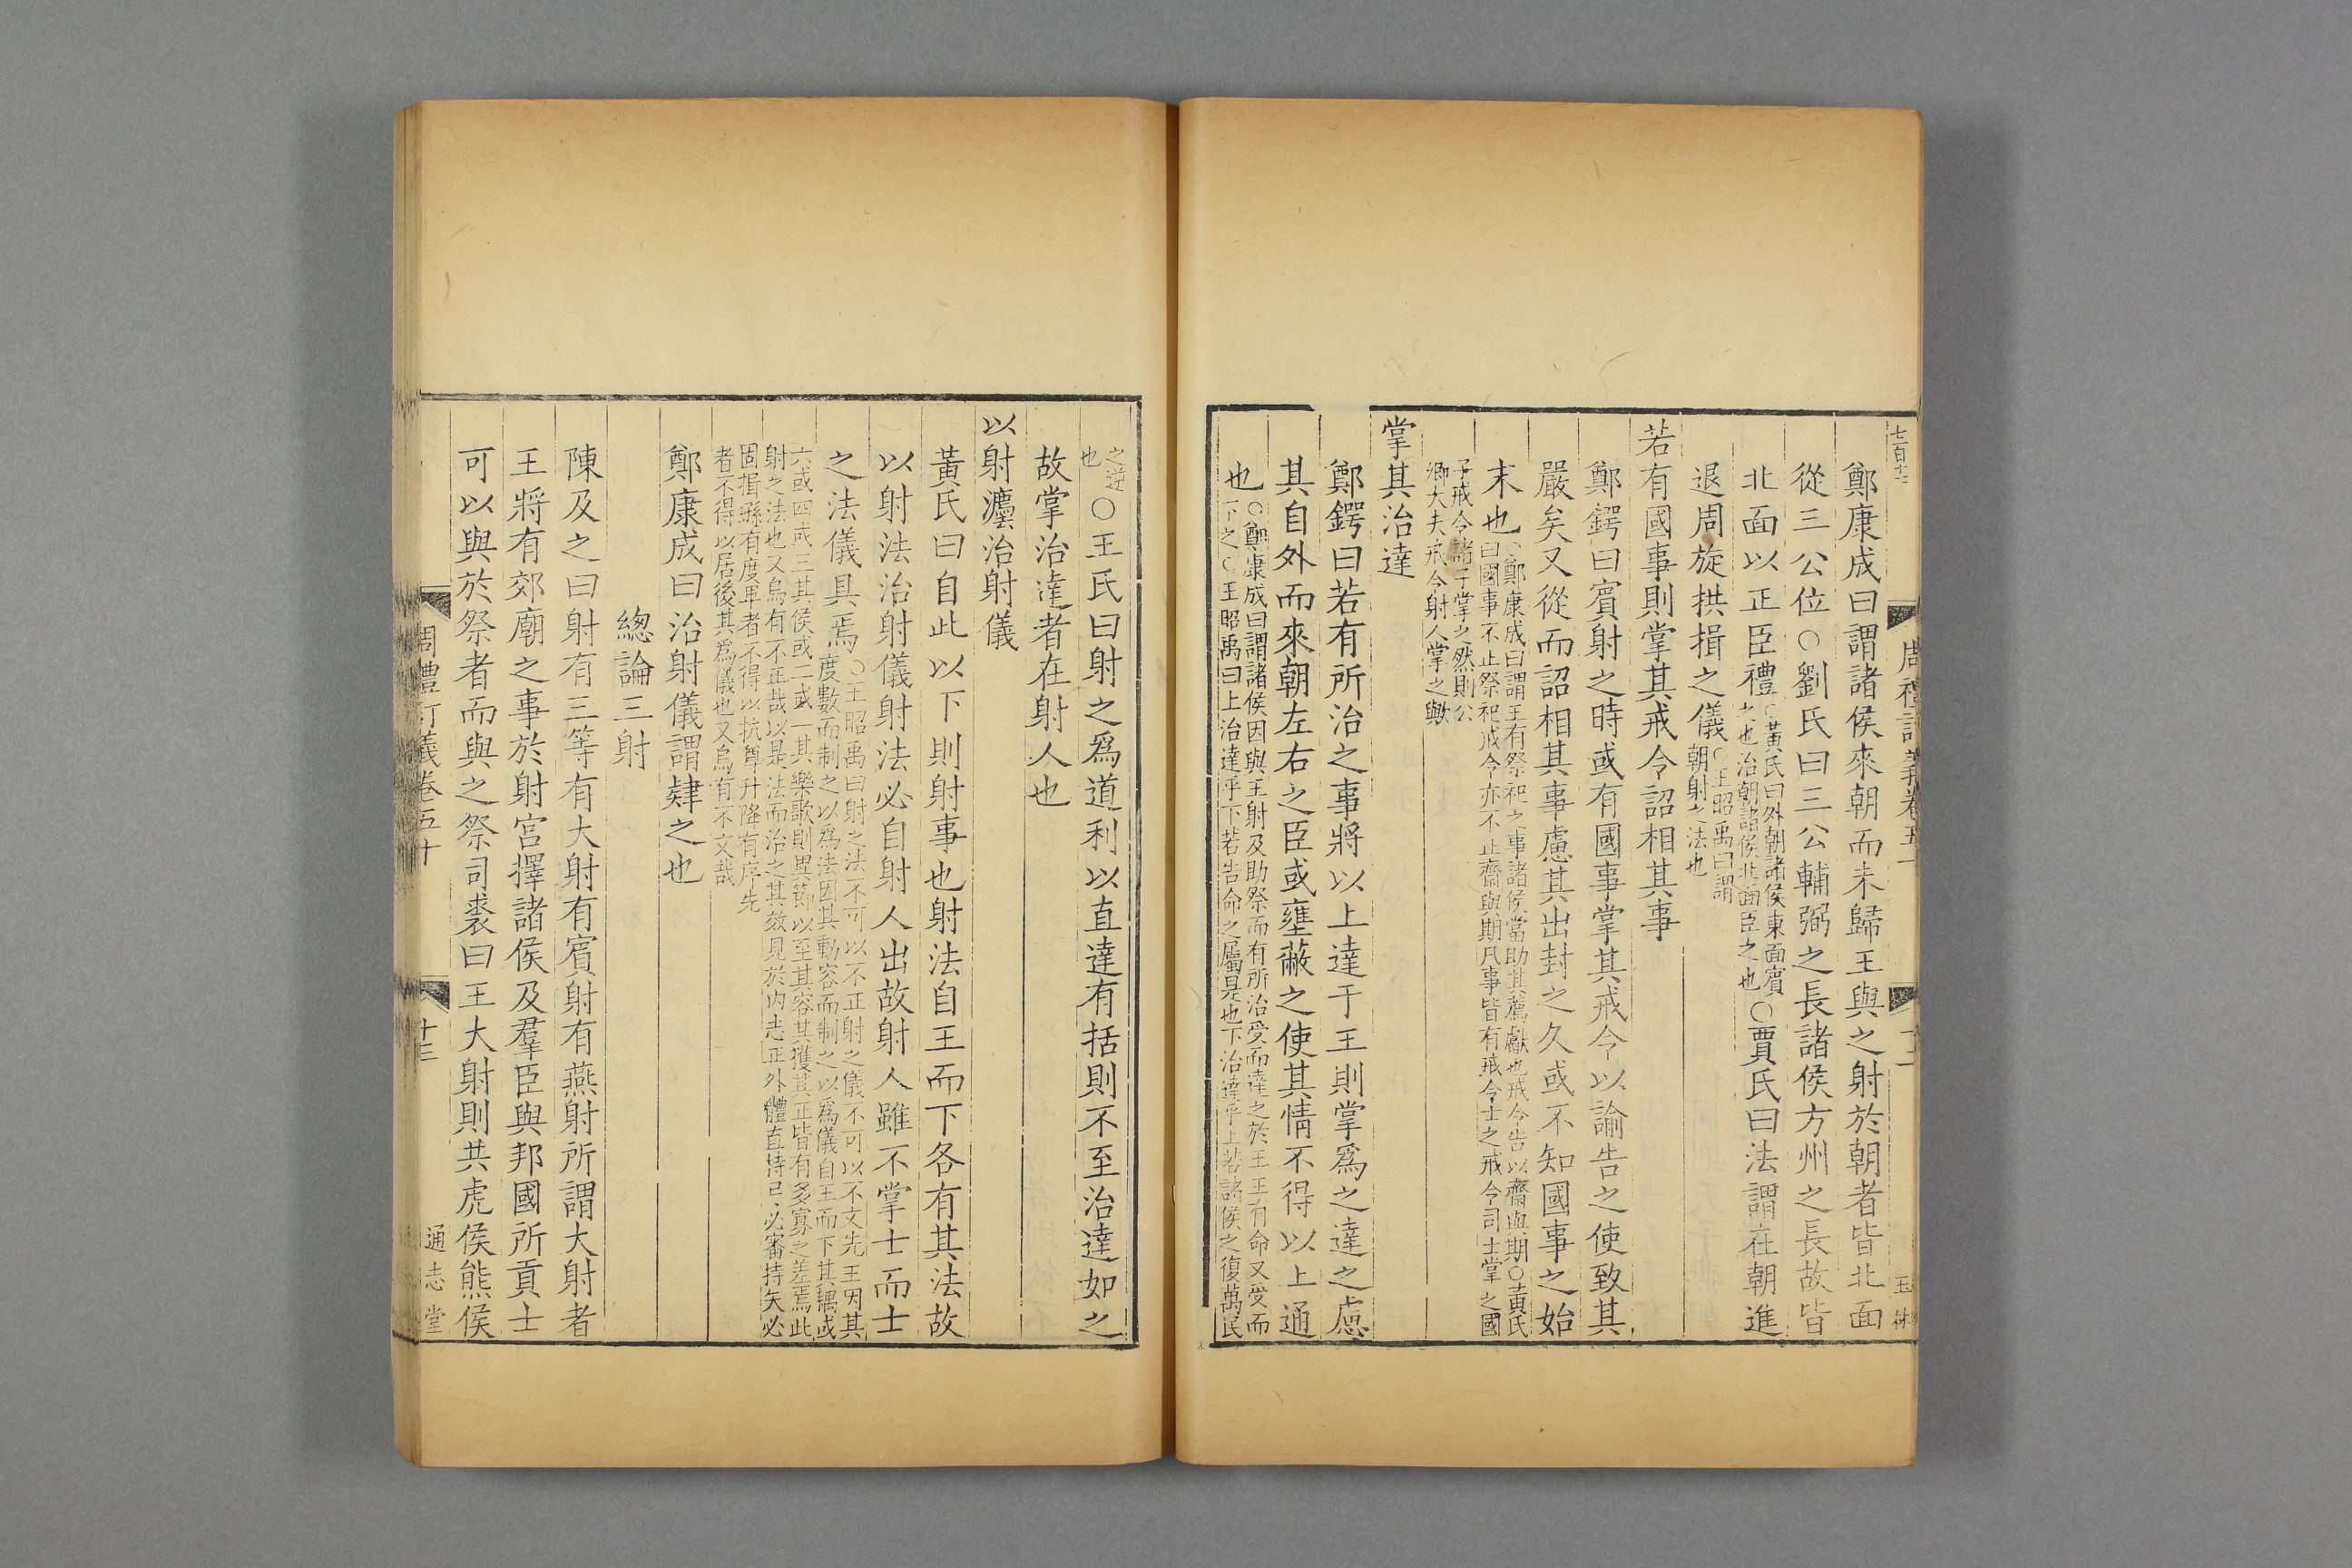 鄭康成曰謂諸侯來朝而未歸王與之射於朝者皆北面
從三公位○劉氏曰三公輔弼之長諸侯方州之長故皆
北面以正臣禮
○黃氏曰外朝諸侯東面賓
之也治朝諸侯北面臣之也
○賈氏曰法謂在朝進
退周旋拱揖之儀
○王昭禹曰謂
朝射之法也
若有國事則掌其戒令詔相其事
鄭鍔曰賓射之時或有國事掌其戒令以諭告之使致其
嚴矣又從而詔相其事慮其出封之久或不知國事之始
末也
○鄭康成曰謂王有祭祀之事諸侯當助其薦獻也戒令告以齋與期○黃氏
曰國事不止祭祀戒令亦不止齋與期凡事皆有戒令士之戒令司士掌之國
子戒令諸子掌之然則公
卿大夫戒令射人掌之與
掌其治達
鄭鍔曰若有所治之事將以上達于王則掌爲之達之慮
其自外而來朝左右之臣或壅蔽之使其情不得以上通
也
○鄭康成曰謂諸侯因與王射及助祭而有所治受而達之於王王有命又受而
下之○王昭禹曰上治達乎下若告命之屬是也下治達乎上若諸侯之復萬民
之逆
也
○王氏曰射之爲道利以直達有括則不至治達如之
故掌治達者在射人也
以射灋治射儀
黃氏曰自此以下則射事也射法自王而下各有其法故
以射法治射儀射法必自射人出故射人雖不掌士而士
之法儀具焉
○王昭禹曰射之法不可以不正射之儀不可以不文先王因其
度數而制之以爲法因其動容而制之以爲儀自王而下其耦或
六或四或三其侯或二或一其樂歌則異節以至其容其獲其正皆有多寡之差焉此
射之法也又烏有不正哉以是法而治之其效見於內志正外體直持弓必審持矢必
固揖遜有度卑者不得以抗尊升降有序先
者不得以居後其爲儀也又烏有不文哉
鄭康成曰治射儀謂肄之也
總論三射
陳及之曰射有三等有大射有賓射有燕射所謂大射者
王將有郊廟之事於射宮擇諸侯及羣臣與邦國所貢士
可以與於祭者而與之祭司裘曰王大射則共虎侯熊侯
周禮訂義卷五十
十三
通志堂